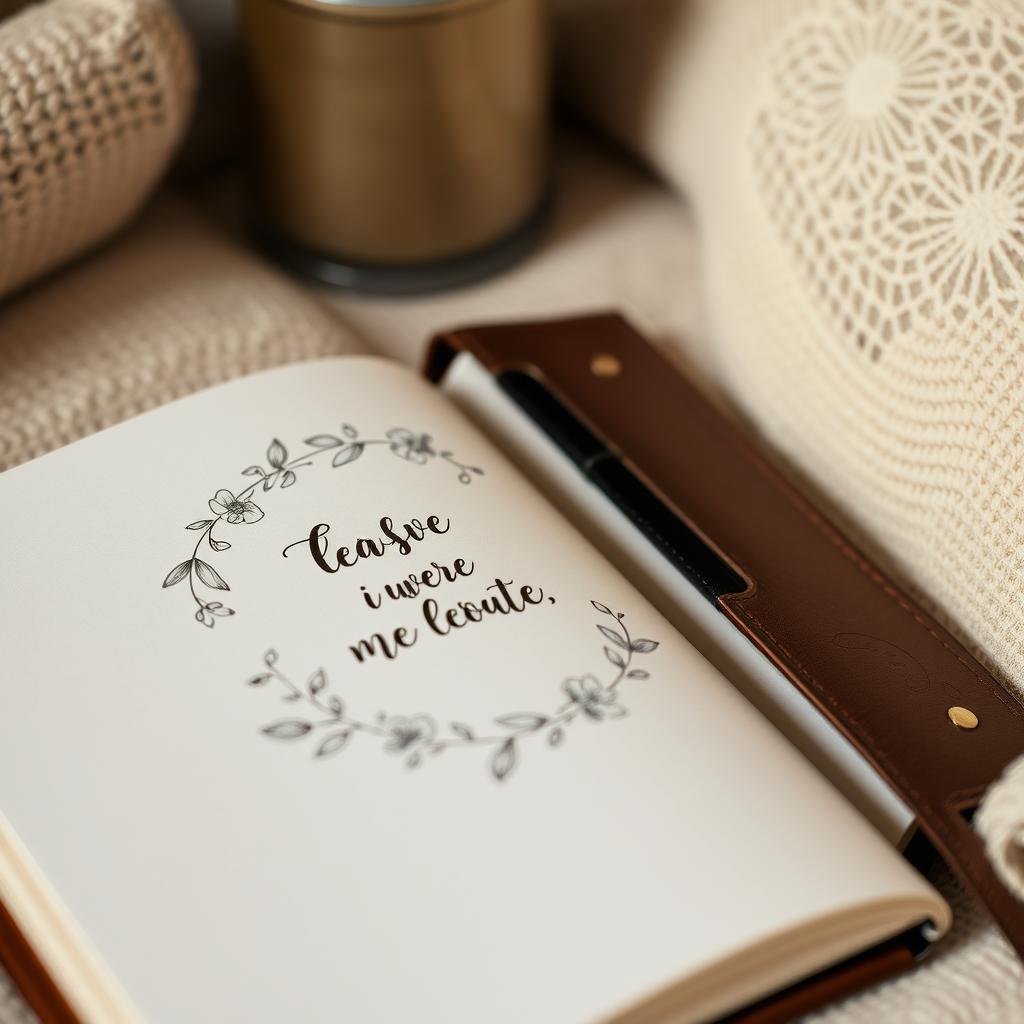 leasve
i were
me leoute,